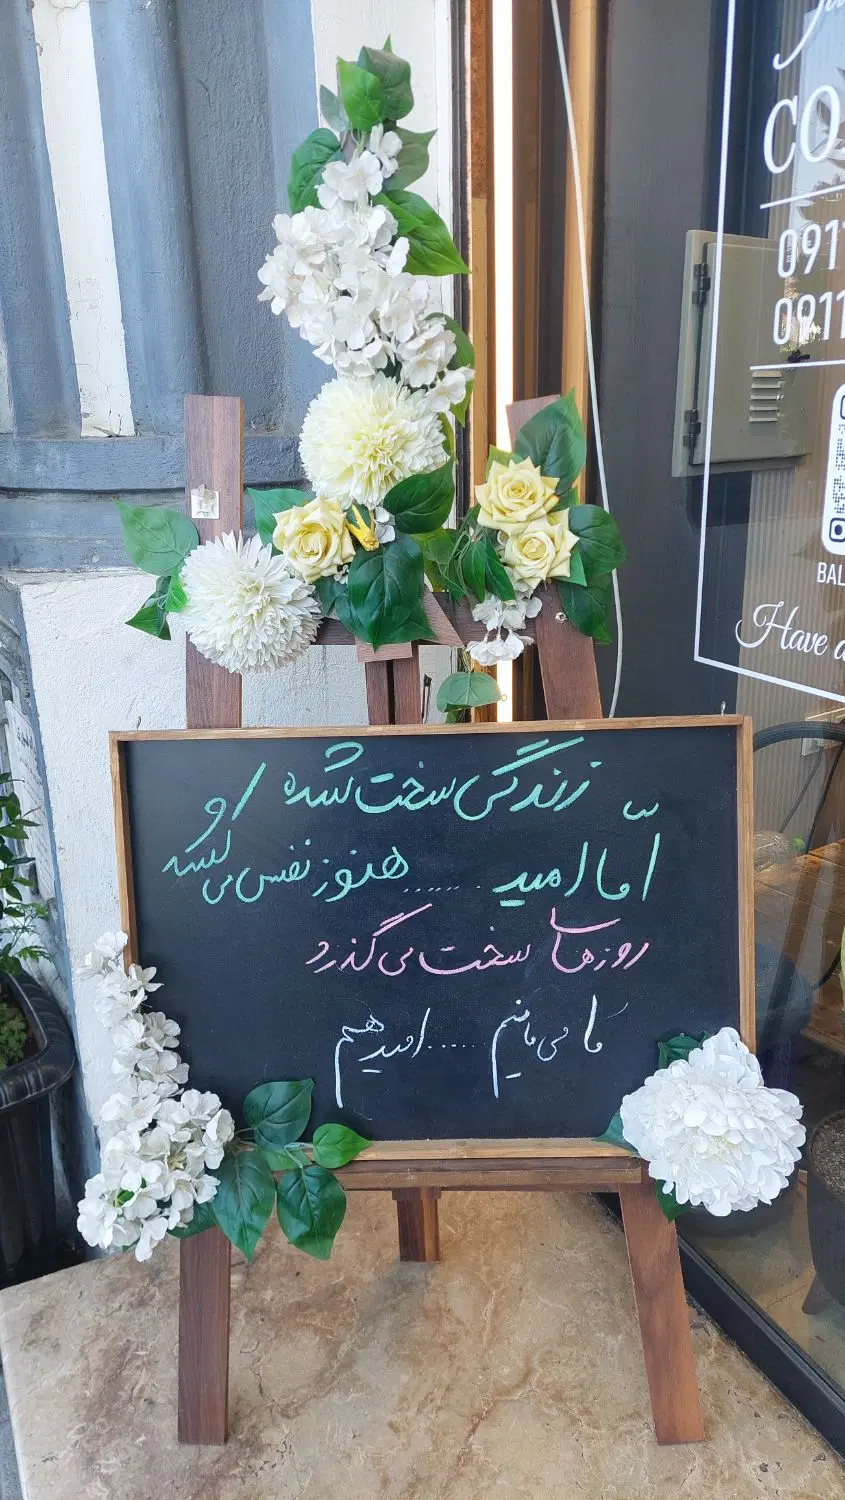 زندگی سخت شده
امّا امید ...... هنوز نفس می‌کشد
روزها سخت می‌گذرد
ما می‌مانیم ...... امید هم
CO
0911
0911
BAL
Have a